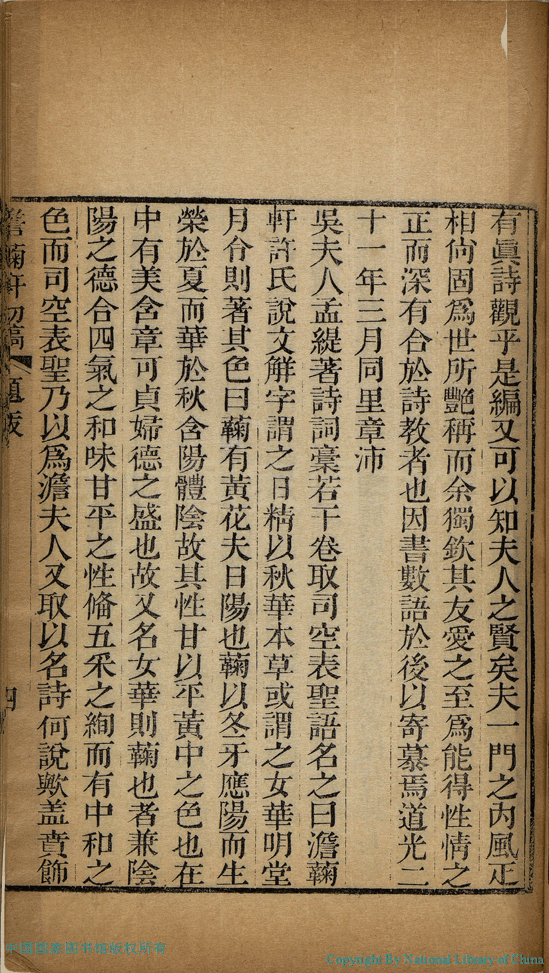 有眞詩觀乎是編又可以知夫人之賢矣夫一門之内風疋
相尙固爲世所艷稱而余獨欽其友愛之至爲能得性情之
正而深有合於詩教者也因書數語於後以寄慕焉道光二
十一年三月同里章沛
吳夫人孟緹著詩詞稾若干卷取司空表聖語名之曰澹蘜
軒許氏說文解字謂之日精以秋華本草或謂之女華明堂
月令則著其色曰蘜有黃花夫日陽也蘜以冬牙應陽而生
榮於夏而華於秋含陽體陰故其性甘以平黃中之色也在
中有美含章可貞婦德之盛也故又名女華則蘜也者兼陰
陽之德合四氣之和味甘平之性脩五釆之絢而有中和之
色而司空表聖乃以爲澹夫人又取以名詩何說歟盖賁飾
澹蘜軒初稿
題跋
四
中国国家图书馆版权所有
Copyright By National Library of China